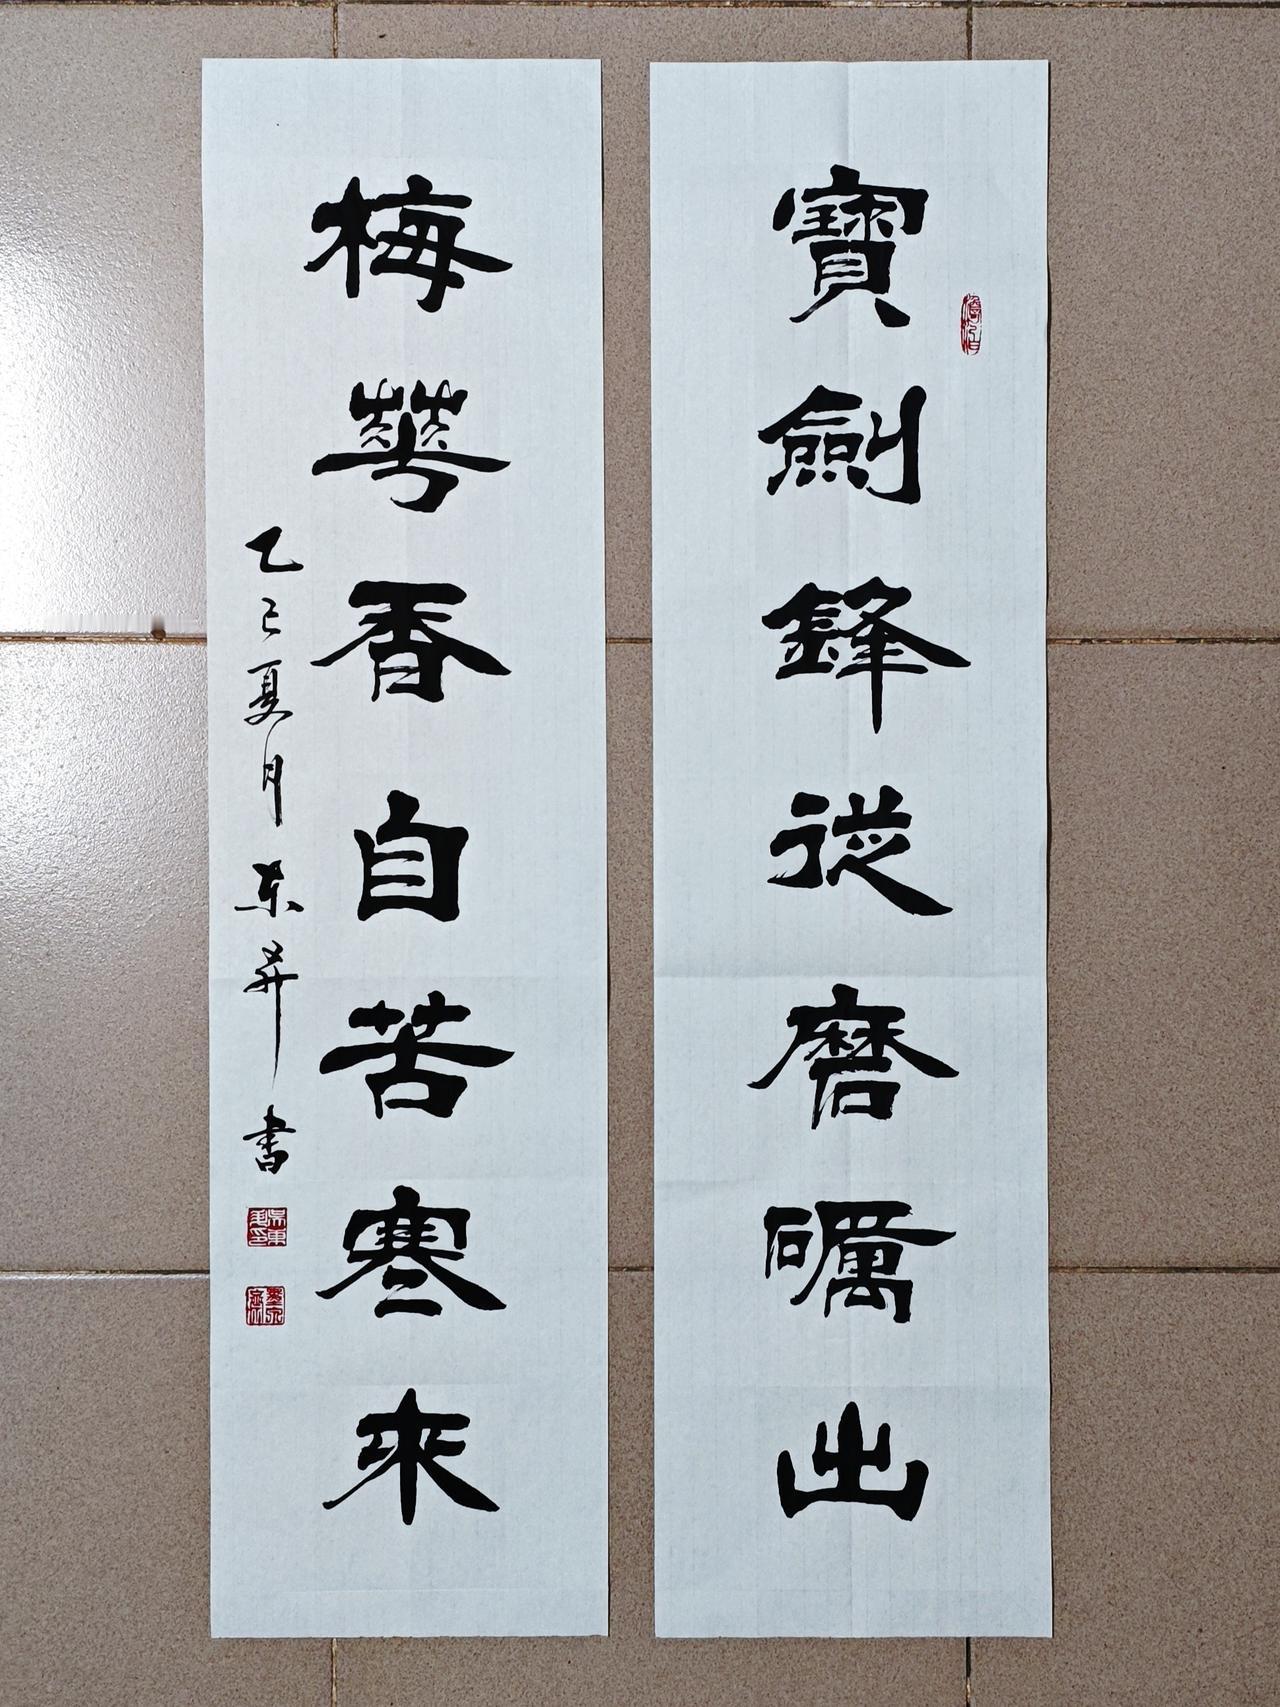 寶劍鋒從磨礪出
梅花香自苦寒來
乙巳夏月東昇書